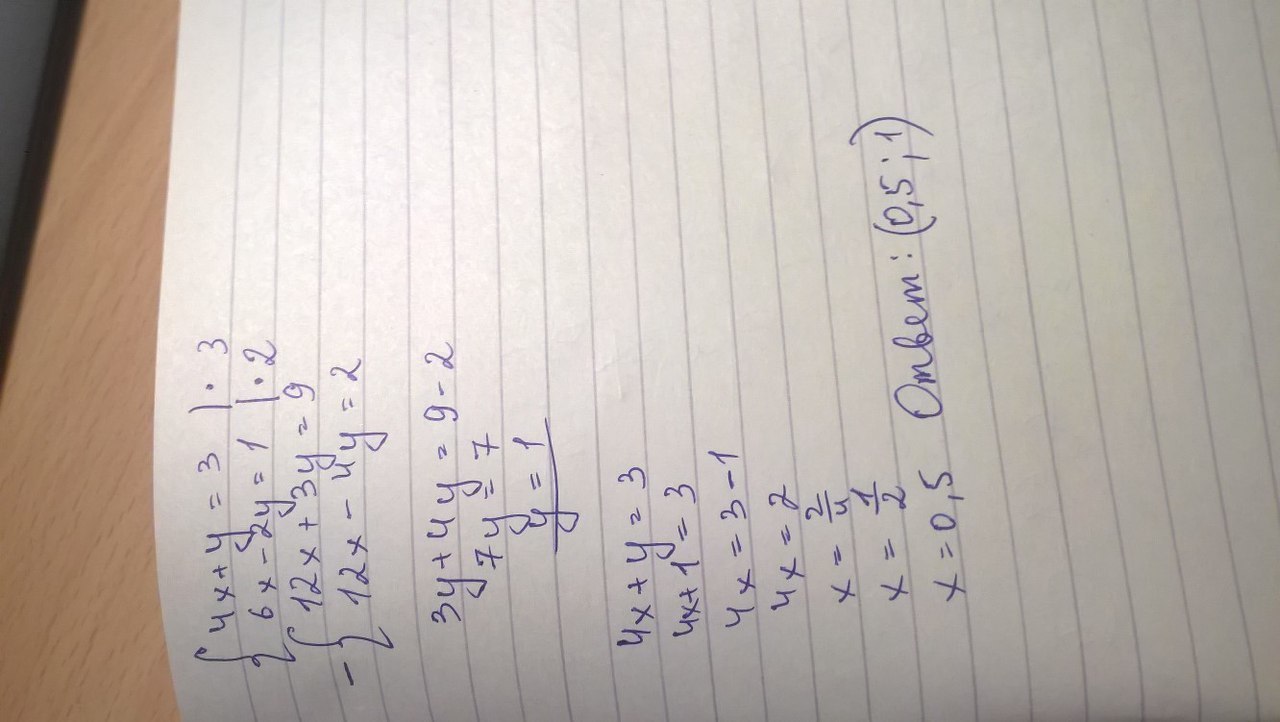 { 4x + y = 3 | · 3
6x - 2y = 1 | · 2
- { 12x + 3y = 9
12x - 4y = 2
3y + 4y = 9 - 2
7y = 7
y = 1
4x + y = 3
4x + 1 = 3
4x = 3 - 1
4x = 2
x = 2/4
x = 1/2
x = 0,5 Ответ: (0,5; 1)